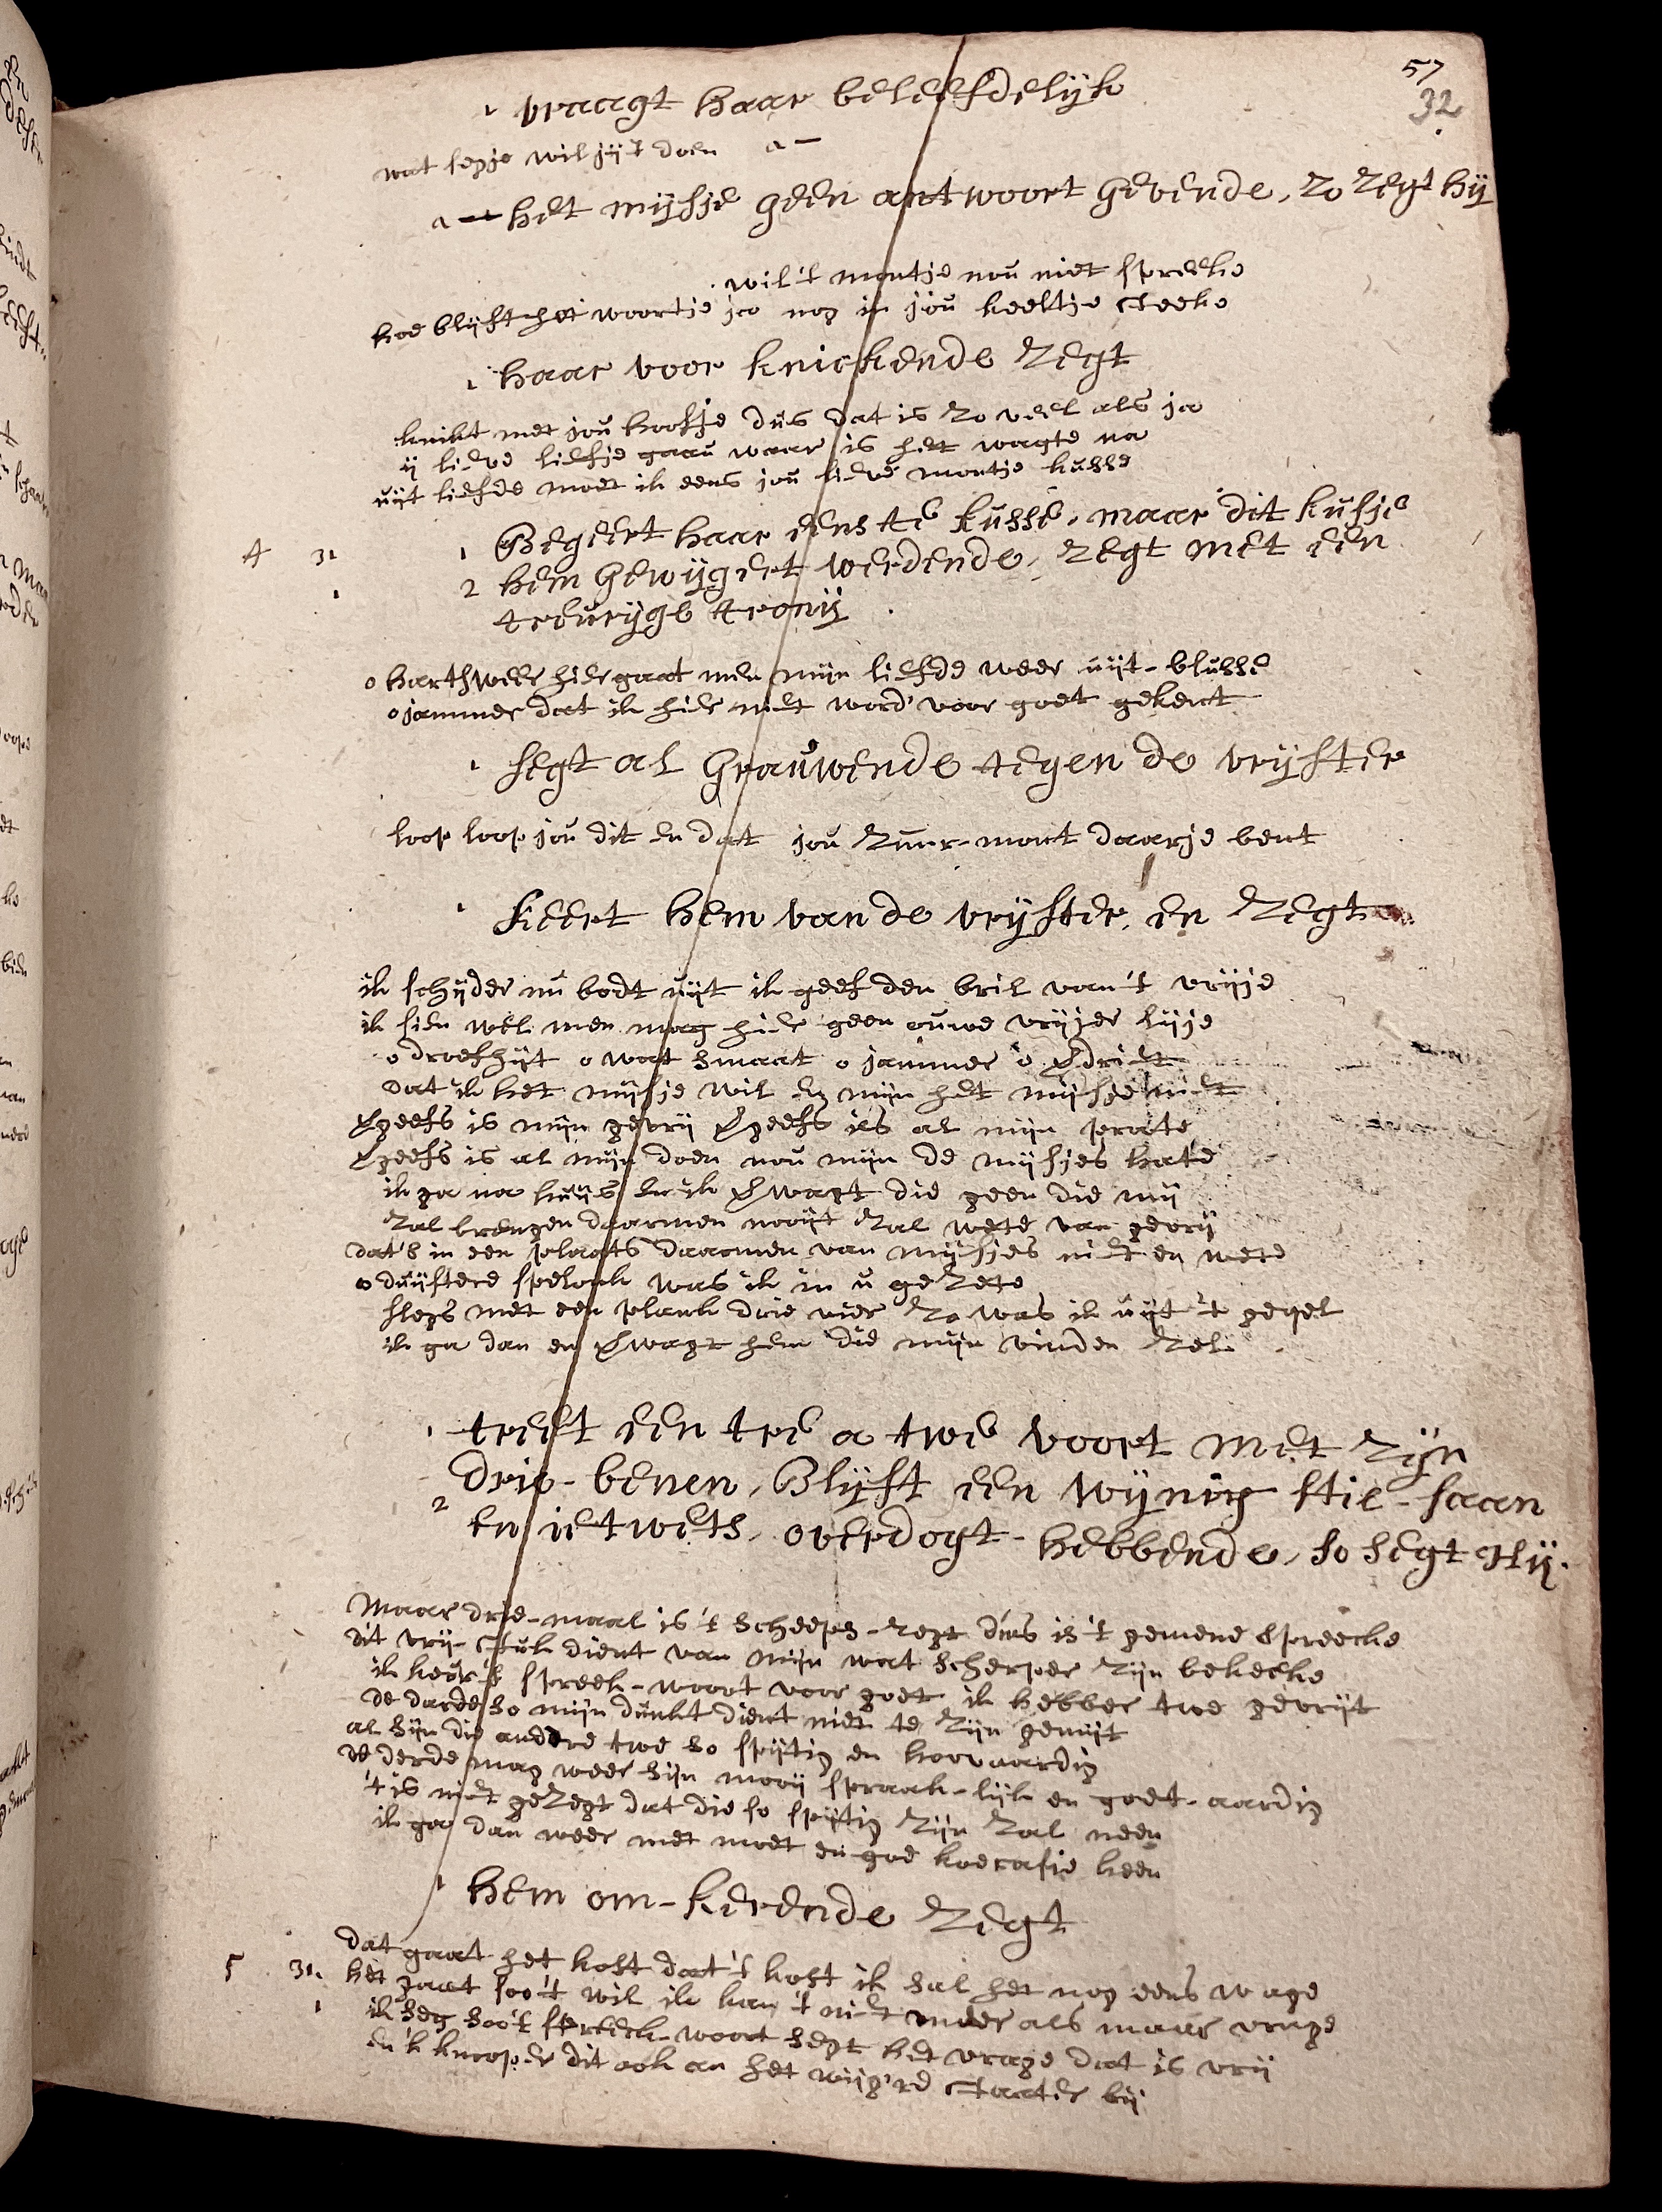 57
32
1 vraagt haar beleefdelijk
wat segje wil jij't doen a —
a — het mijsje geen antwoort gevende, zo zegt hij
wil 't montje nou niet spreeke
hoe blijft het woortje jou nog in jou keeltje steeke
1 haar voor knickende zegt
knikt met jou hoofje dus dat is zo veel als ja
ij lieve liefje gaau waar is het wagte na
uijt liefde moet ik eens jou lieve montje kusse
4 31 1 Begeert haar eens te kusse, maar dit kusje
1 2 hem gewijgert werdende, zegt met een
treurijge tronij
o hartsweer hier gaat men mijn liefde weer uijt-blusse
o jammer dat ik hier niet word' voor goet gekent
1 segt al Grauwende tegen de vrijster
loop loop jou dit en dat jou zuur-mont daarje bent
1 keert hem van de vrijster, en zegt
ik schijder nu bodt uijt ik geef den bril van 't vrijje
ik sien wel men mag hier geen ouwe vrijer lijje
o droefhijt o wat smaat o jammer o verdriet
dat ik het mijsje wil en mijn het mijsje niet
vergeefs is mijn gevrij vergeefs is al mijn prate
vergeefs is al mijn doen nou mijn de mijsjes hate
ik ga na huijs en ik verwagt die geen die mij
zal brengen daarmen nooijt zal wete van gevrij
dat's in een plaats daarmen van mijsjes niet en wete
o duijstere spelonk was ik in u gezete
slegs met een plank drie vier zo was ik uijt 't geqel
ik ga dan en verwagt hem die mijn vinden zel
1 treet een tre a twe voort met zijn
drie-benen, Blijft een wijnig stil-staan
2 en ietwets, overdogt-hebbende, so segt Hij.
Maar drie-maal is 't scheeps-regt dus is 't gemene spreecke
dit vrij-stuk dient van mijn wat scherper zijn bekeeke
ik keur 't spreek-woort voor goet ik hebber twe gevrijt
de darde so mijn dunkt dient niet te zijn gemijt
al sijn die andere twe so spijtig en hoovaardig
de derde mag weer sijn mooij spraak-lijk en goet-aardig
't is niet gezegt dat die so spijtig zijn zal neen
ik ga dan weer met moet en goe koerasie heen
1 hem om-keerende zegt
dat gaat het kost dat 't kost ik sal het nog eens wage
5 31. het gaat soo 't wil ik kan 't niet meer als maar vrage
1 ik seg soo 't spreeck-woort segt het vrage dat is vrij
en 'k knoop er dit ook an het wijg're staat er bij